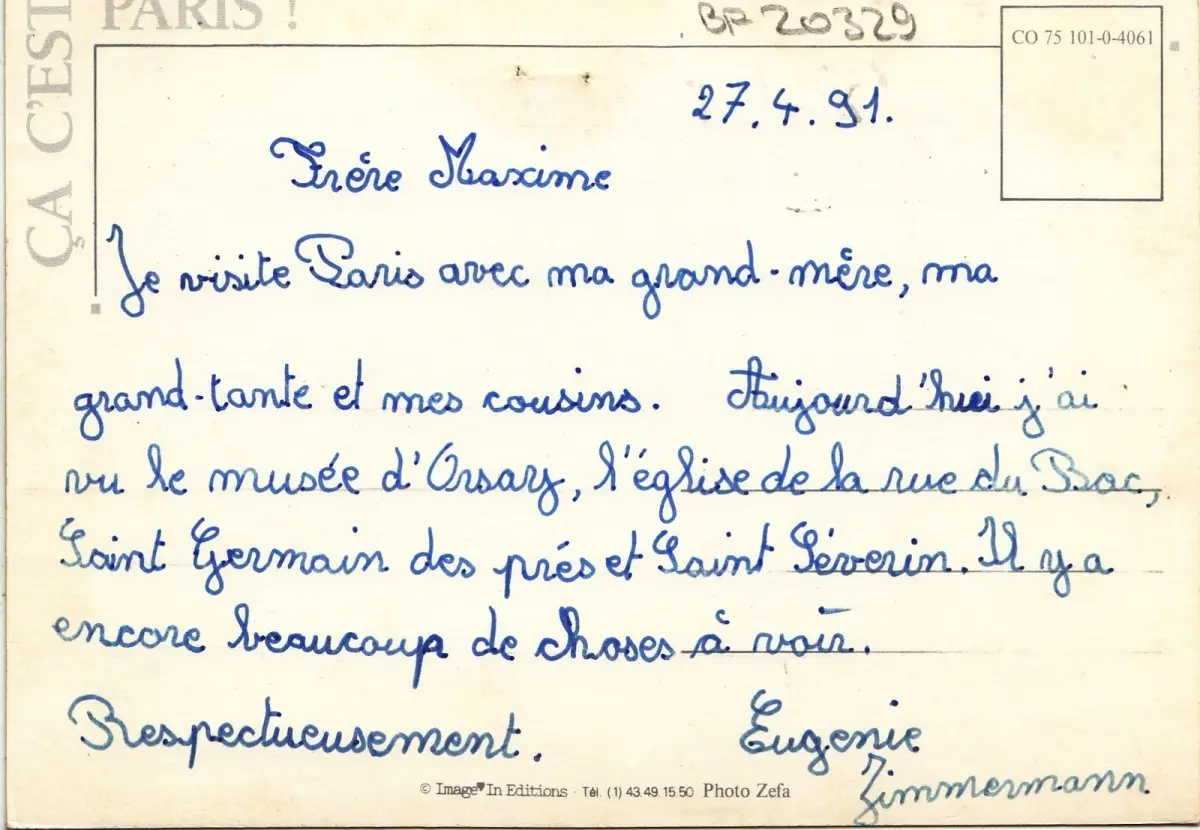 PARIS !
ÇA C'EST
BP 20329
CO 75 101-0-4061
27.4.91.
Frère Maxime
Je visite Paris avec ma grand-mère, ma
grand-tante et mes cousins. Aujourd'hui j'ai
vu le musée d'Orsay, l'église de la rue du Bac,
Saint Germain des prés et Saint Séverin. Il y a
encore beaucoup de choses à voir.
Respectueusement. Eugenie
Zimmermann
© Image In Editions - Tél. (1) 43.49.15.50 Photo Zefa